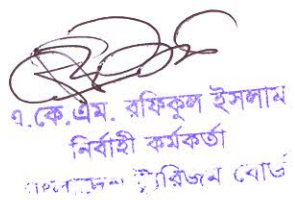 এ.কে.এম. রফিকুল ইসলাম
নির্বাহী কর্মকর্তা
ট্যুরিজম বোর্ড